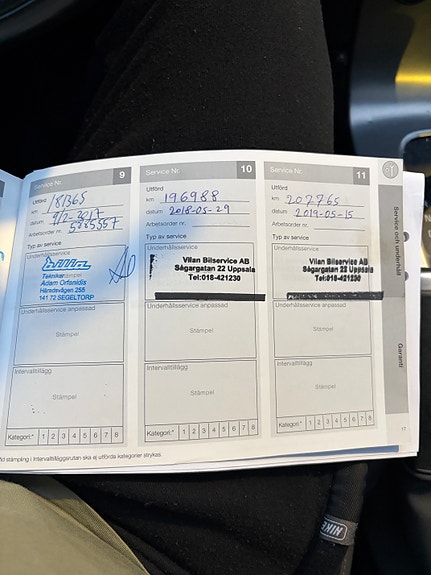 Service Nr. 9
Utförd
km 181365
datum 9/2-2017
Arbetsorder nr. 5885557
Typ av service
Underhållsservice
Teknikarstämpel
Adam Orfanidis
Häradsvägen 255
141 72 SEGELTORP
Underhållsservice anpassad
Stämpel
Intervalltillägg
Stämpel
Kategori.* 1 2 3 4 5 6 7 8
Service Nr. 10
Utförd
km 196988
datum 2018-05-29
Arbetsorder nr.
Typ av service
Underhållsservice
Vilan Bilservice AB
Sågargatan 22 Uppsala
Tel:018-421230
Underhållsservice anpassad
Stämpel
Intervalltillägg
Stämpel
Kategori.* 1 2 3 4 5 6 7 8
Service Nr. 11
Utförd
km 202765
datum 2019-05-15
Arbetsorder nr.
Typ av service
Underhållsservice
Vilan Bilservice AB
Sågargatan 22 Uppsala
Tel:018-421230
Underhållsservice anpassad
Stämpel
Intervalltillägg
Stämpel
Kategori.* 1 2 3 4 5 6 7 8
Service och underhåll
Garanti
17
stämpling i Intervalltilläggsrutan ska ej utförda kategorier strykas.
NIKE